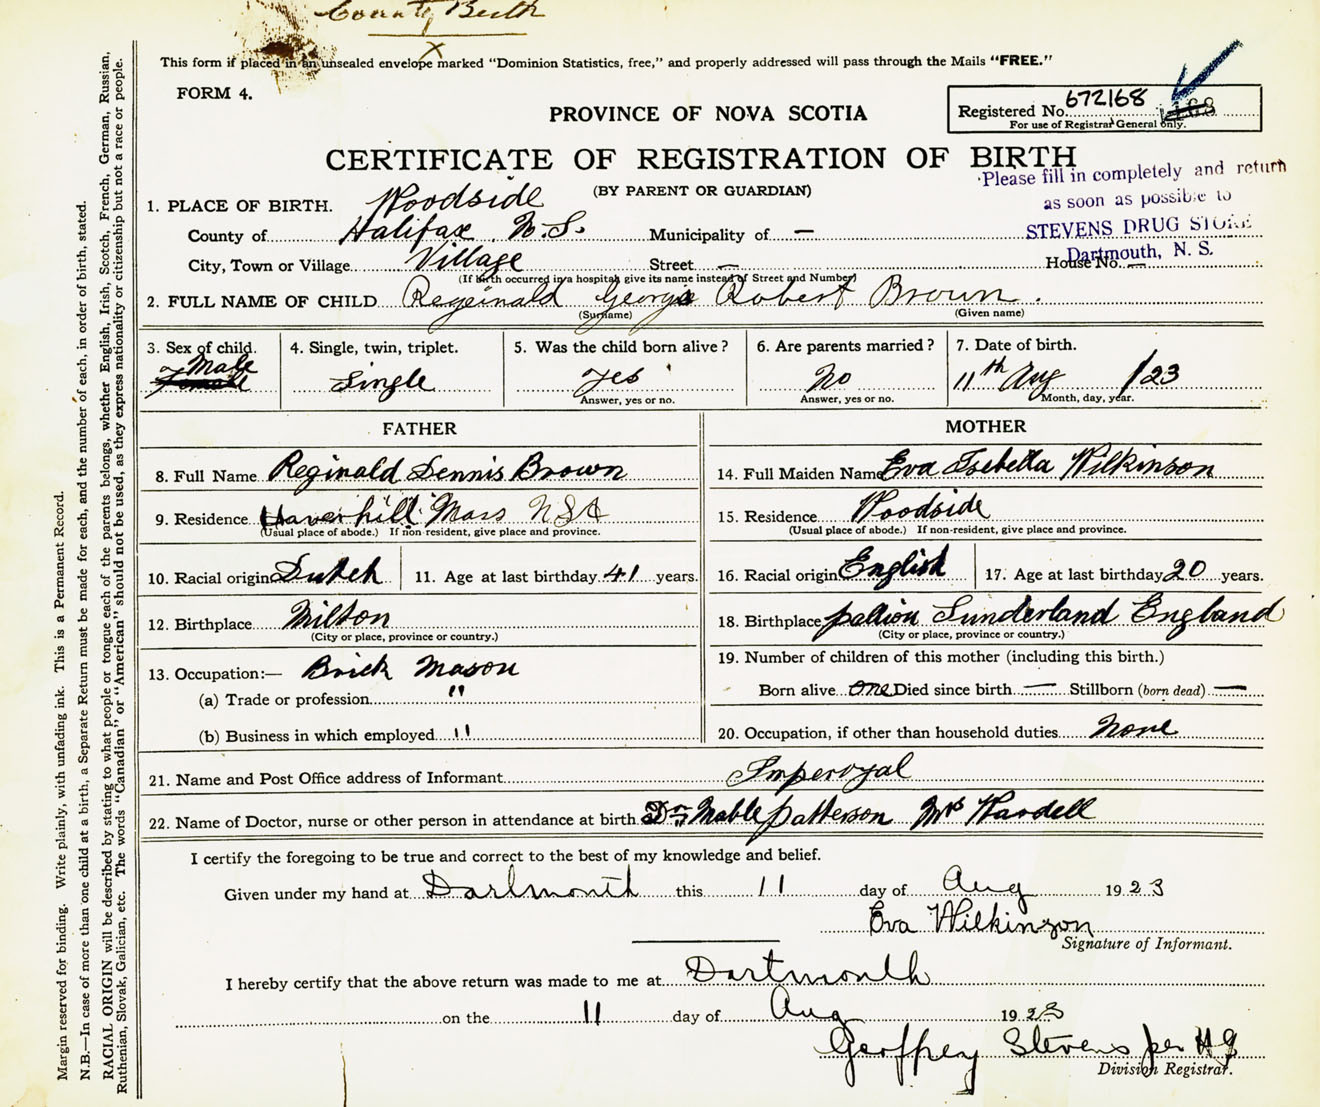 County Birth
x
This form if placed in an unsealed envelope marked "Dominion Statistics, free," and properly addressed will pass through the Mails "FREE."
FORM 4.
PROVINCE OF NOVA SCOTIA
Registered No. 672168
For use of Registrar General only.
CERTIFICATE OF REGISTRATION OF BIRTH
(BY PARENT OR GUARDIAN)
Please fill in completely and return
as soon as possible to
STEVENS DRUG STORE
Dartmouth, N. S.
1. PLACE OF BIRTH. Woodside
County of Halifax N.S. Municipality of —
City, Town or Village Village Street — House No. —
(If birth occurred in a hospital give its name instead of Street and Number)
2. FULL NAME OF CHILD Regeinald George Robert Brown.
(Surname) (Given name)
3. Sex of child. Male Female
4. Single, twin, triplet. Single
5. Was the child born alive? yes
Answer, yes or no.
6. Are parents married? No
Answer, yes or no.
7. Date of birth. 11th Aug /23
Month, day, year.
FATHER
8. Full Name Reginald Dennis Brown
9. Residence Haverhill Mass USA
(Usual place of abode.) If non-resident, give place and province.
10. Racial origin Dutch 11. Age at last birthday 41 years.
12. Birthplace Milton
(City or place, province or country.)
13. Occupation:— Brick Mason
(a) Trade or profession "
(b) Business in which employed "
MOTHER
14. Full Maiden Name Eva Isebella Wilkinson
15. Residence Woodside
(Usual place of abode.) If non-resident, give place and province.
16. Racial origin English 17. Age at last birthday 20 years.
18. Birthplace pallion Sunderland England
(City or place, province or country.)
19. Number of children of this mother (including this birth.)
Born alive one Died since birth — Stillborn (born dead) —
20. Occupation, if other than household duties None
21. Name and Post Office address of Informant Imperoyal
22. Name of Doctor, nurse or other person in attendance at birth Dr Mable patterson Mrs Wardell
I certify the foregoing to be true and correct to the best of my knowledge and belief.
Given under my hand at Dartmouth this 11 day of Aug 1923
Eva Wilkinson
Signature of Informant.
I hereby certify that the above return was made to me at Dartmouth
on the 11 day of Aug 1923
Geoffrey Stevens per HG
Division Registrar.
Margin reserved for binding. Write plainly, with unfading ink. This is a Permanent Record.
N.B.—In case of more than one child at a birth, a Separate Return must be made for each, and the number of each, in order of birth, stated.
RACIAL ORIGIN will be described by stating to what people or tongue each of the parents belongs, whether English, Irish, Scotch, French, German, Russian,
Ruthenian, Slovak, Galician, etc. The words "Canadian" or "American" should not be used, as they express nationality or citizenship but not a race or people.